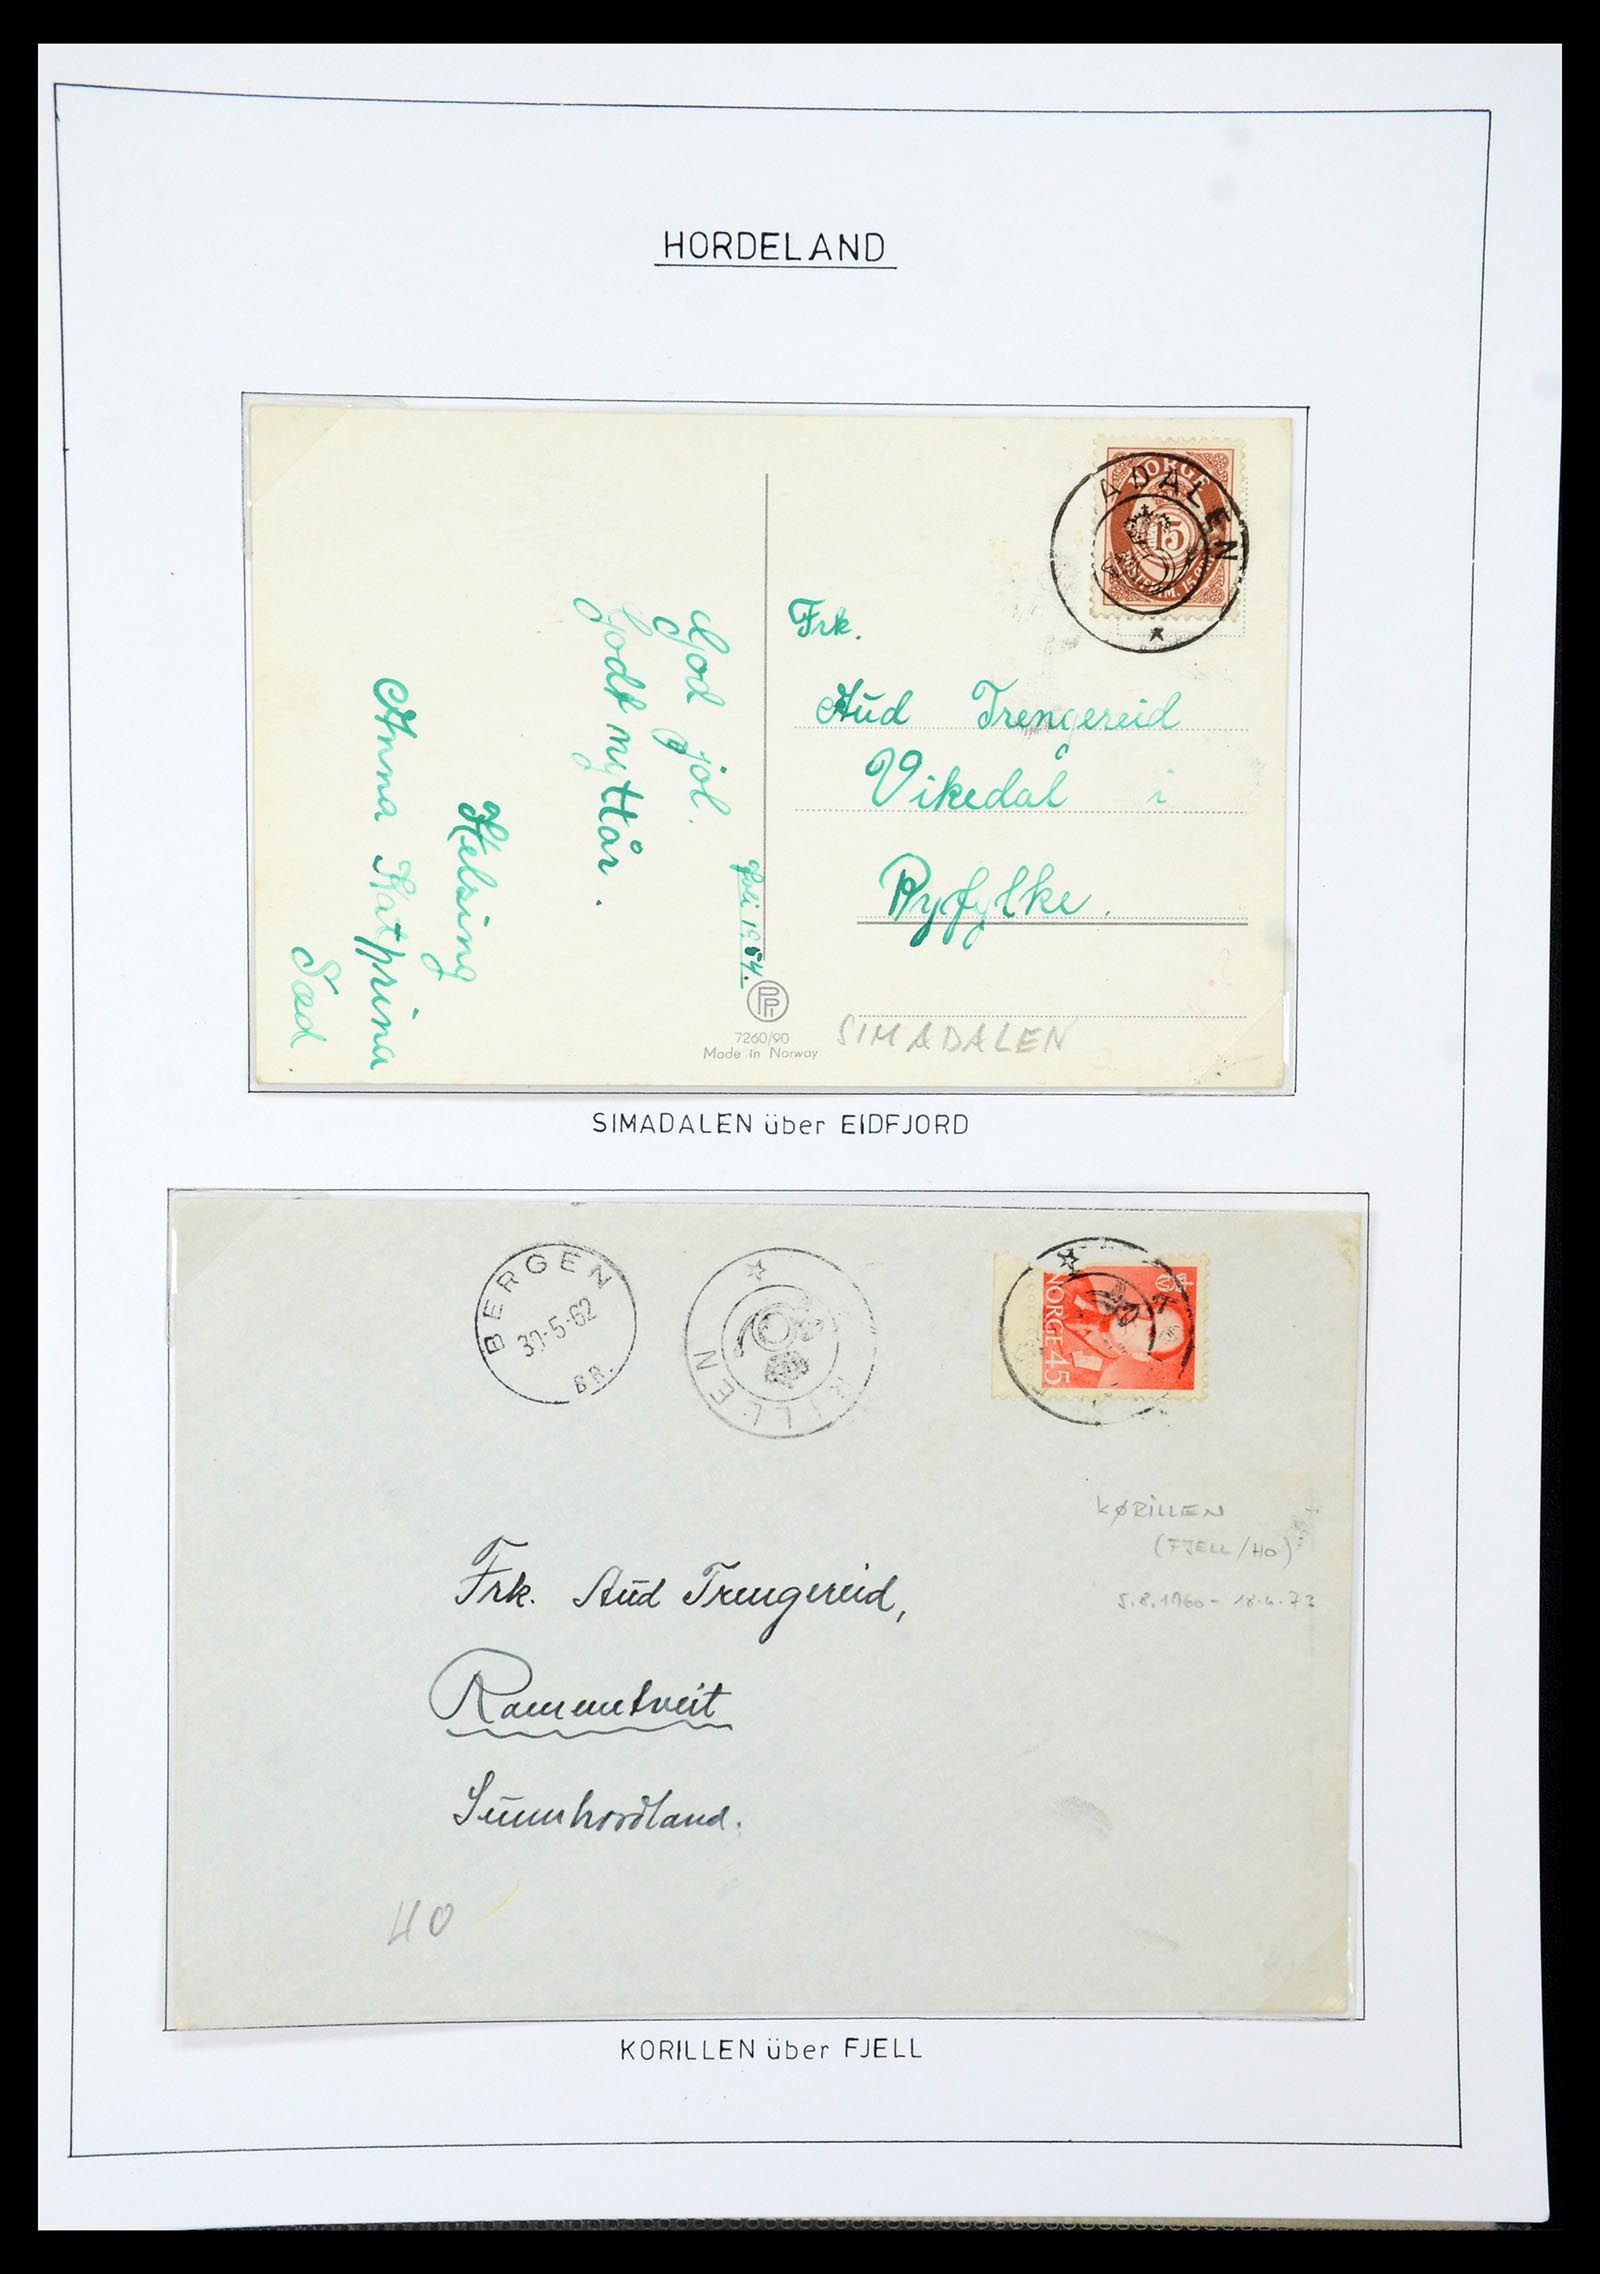 HORDELAND
NORGE
15
ADALEN
God jol.
Godt nyttår.
Helsing
Anna Katrina
Sæd.
Joli 1954.
Frk.
Aud Trengereid
Vikedal i
Ryfylke.
7260/90
Made in Norway
SIMADALEN
SIMADALEN über EIDFJORD
BERGEN
30-5-62
BR.
RILLEN
NORGE 45
KØRILLEN
(FJELL/HO)
5.8.1960 - 18.4.73
Frk. Aud Trengereid,
Rammtveit
Sunnhordland.
40
KORILLEN über FJELL